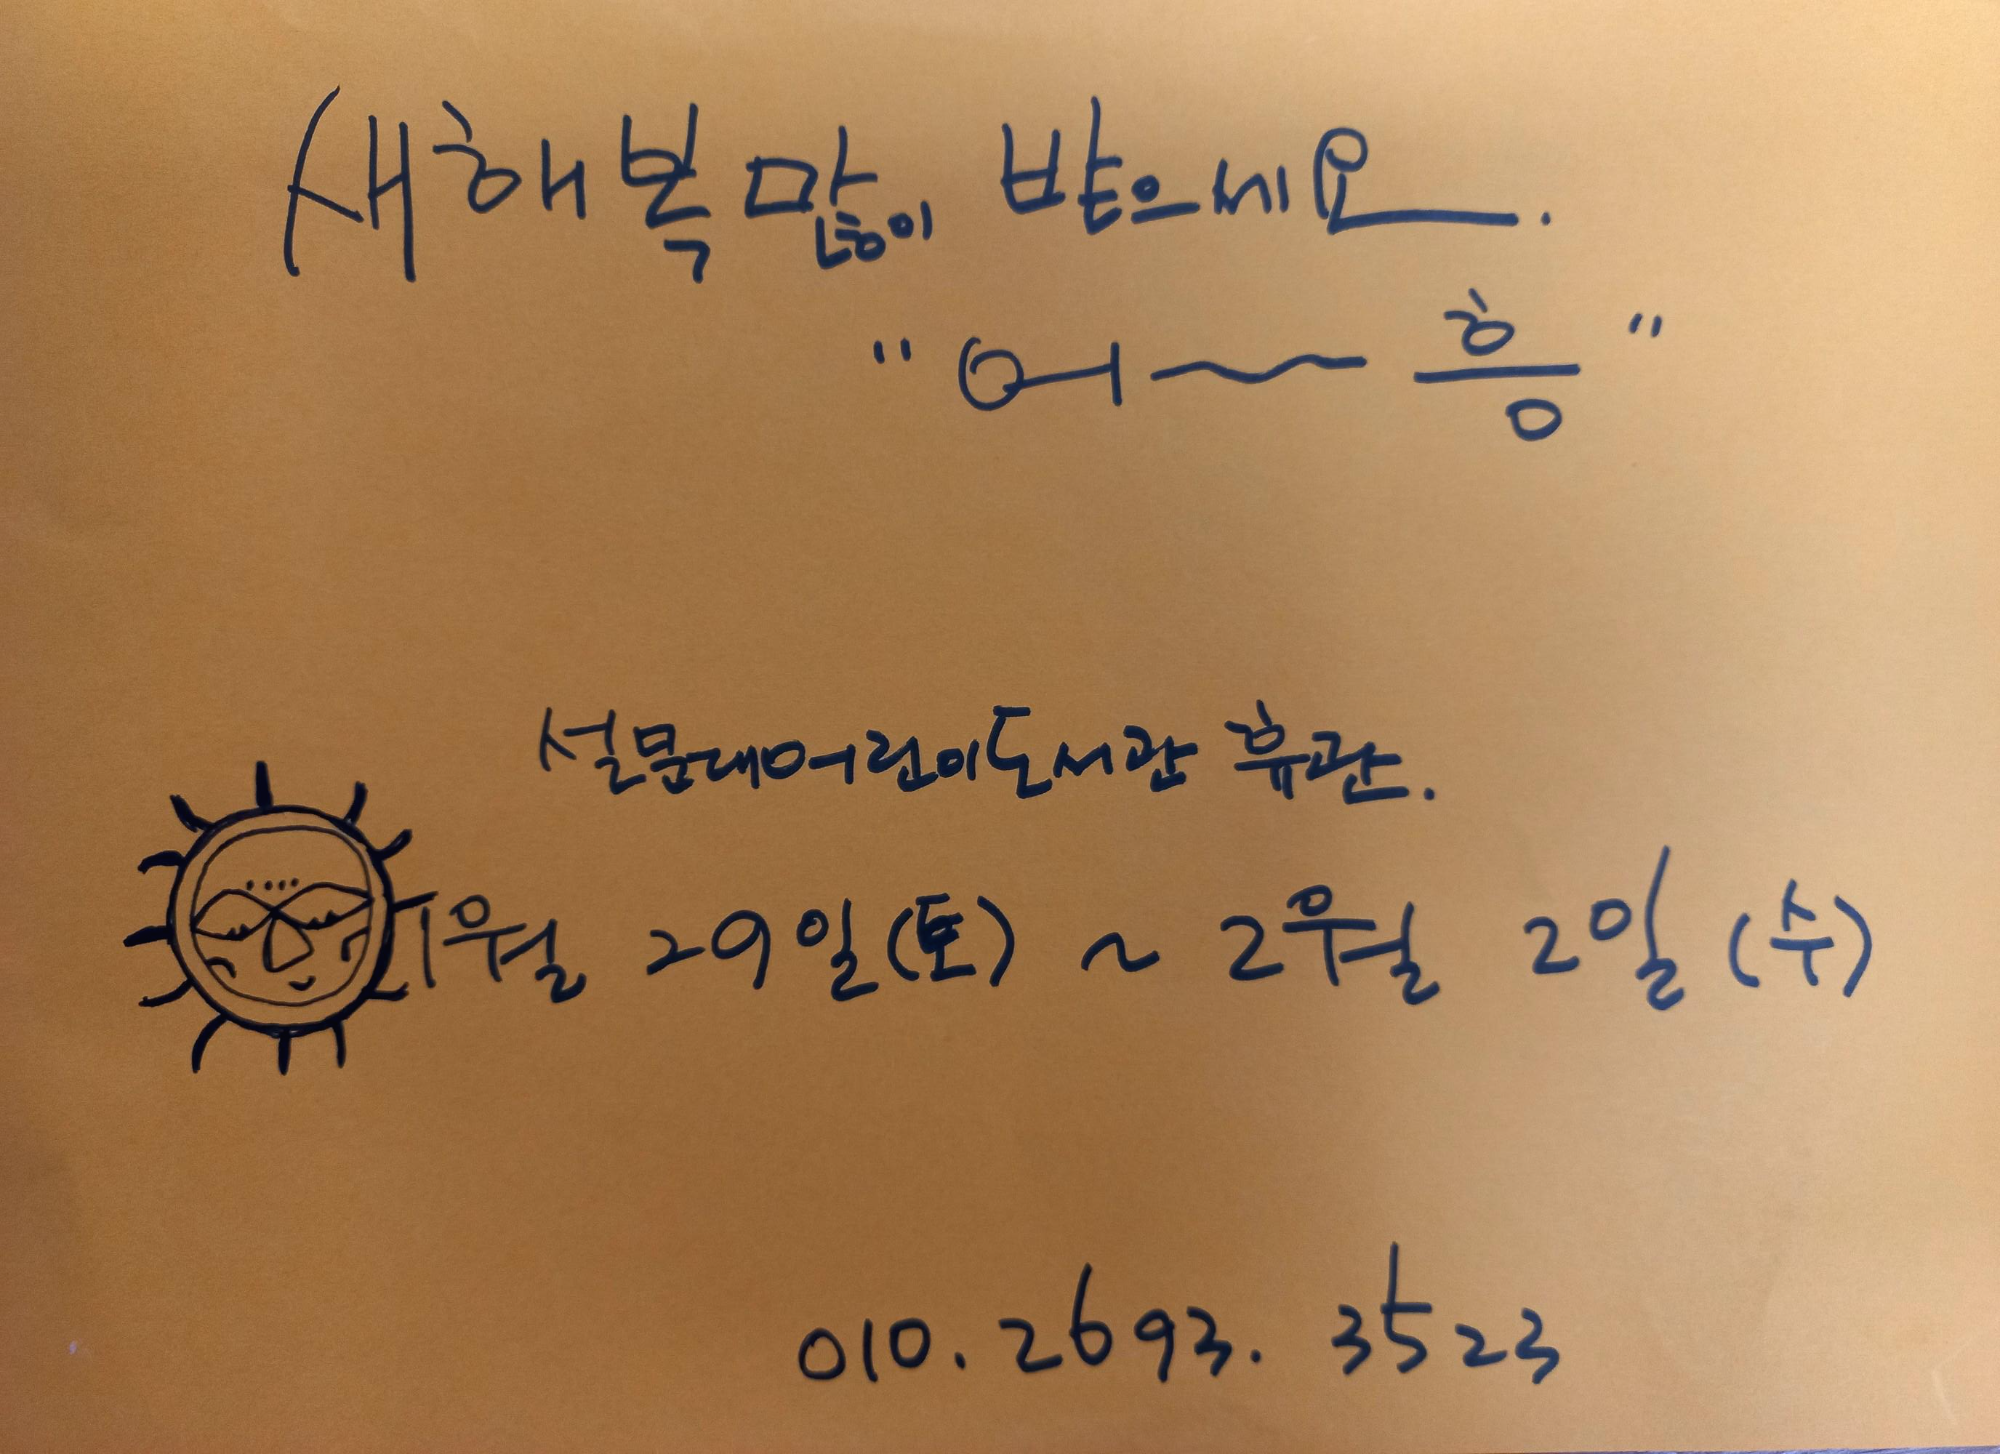 새해 복 많이 받으세요.
"어~흥"
설문대어린이도서관 휴관.
1월 29일(토) ~ 2월 2일(수)
010.2693.3523